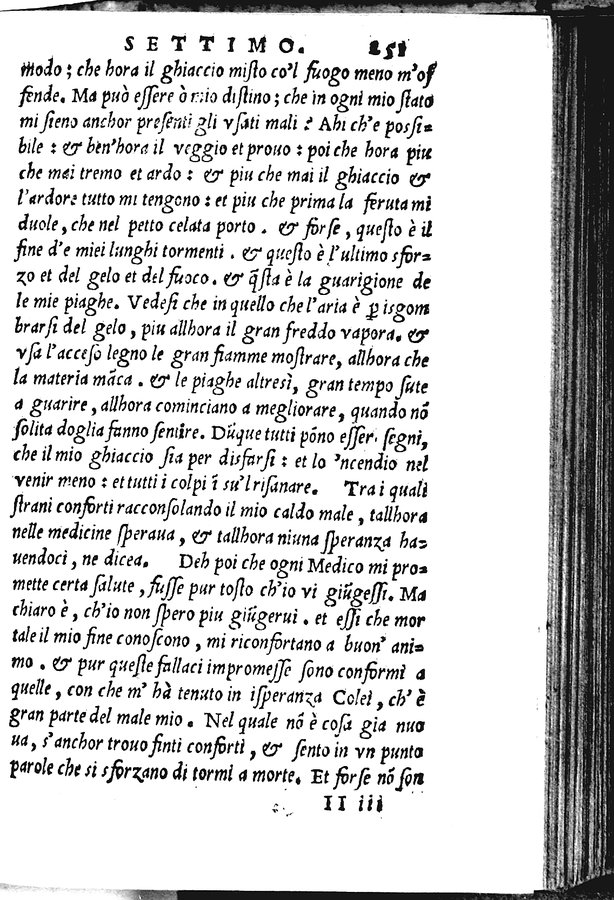 SETTIMO. 251
modo; che hora il ghiaccio miſto co'l fuogo meno m'of
fende. Ma può eſſere ò mio diſtino; che in ogni mio ſtato
mi ſieno anchor preſenti gli vſati mali? Ahi ch'e poſſi=
bile: & ben'hora il veggio et prouo: poi che hora piu
che mai tremo et ardo: & piu che mai il ghiaccio &
l'ardore tutto mi tengono: et piu che prima la feruta mi
duole, che nel petto celata porto. & forſe, queſto è il
fine d'e miei lunghi tormenti. & queſto è l'ultimo sfor=
zo et del gelo et del fuoco. & q̃ſta è la guarigione de
le mie piaghe. Vedeſi che in quello che l'aria è ꝑ isgom
brarſi del gelo, piu allhora il gran freddo vapora. &
vſa l'acceſo legno le gran fiamme moſtrare, allhora che
la materia māca. & le piaghe altresì, gran tempo ſute
a guarire, allhora cominciano a megliorare, quando nō
ſolita doglia fanno ſentire. Dūque tutti pōno eſſer ſegni,
che il mio ghiaccio ſia per disfarſi: et lo 'ncendio nel
venir meno: et tutti i colpi ī su'l riſanare. Tra i quali
ſtrani conforti racconſolando il mio caldo male, tallhora
nelle medicine ſperaua, & tallhora niuna ſperanza ha=
uendoci, ne dicea. Deh poi che ogni Medico mi pro=
mette certa ſalute, fuſſe pur toſto ch'io vi giūgeſſi. Ma
chiaro è, ch'io non ſpero piu giūgerui. et eſſi che mor
tale il mio fine conoſcono, mi riconfortano a buon' ani=
mo. & pur queſte fallaci impromeſſe ſono conformi a
quelle, con che m' hà tenuto in iſperanza Colei, ch'è
gran parte del male mio. Nel quale nō è coſa gia nuo
ua, s'anchor trouo finti conforti, & ſento in vn punto
parole che si sforzano di tormi a morte. Et forſe nō ſon
II iii